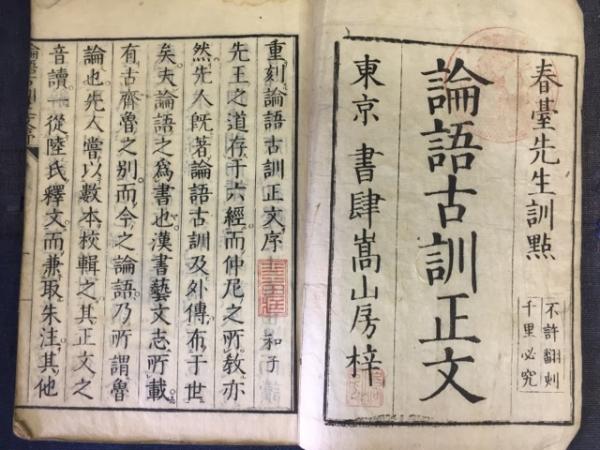 春臺先生訓點
不許翻刻
千里必究
論語古訓正文
東京 書肆嵩山房梓
重刻論語古訓正文序
先王之道存于六經而仲尼之所教亦
然先人既著論語古訓及外傳布于世
矣夫論語之爲書也漢書藝文志所載
有古齊魯之別而今之論語乃所謂魯
論也先人嘗以數本校輯之其正文之
音讀一從陸氏釋文而兼取朱注其他